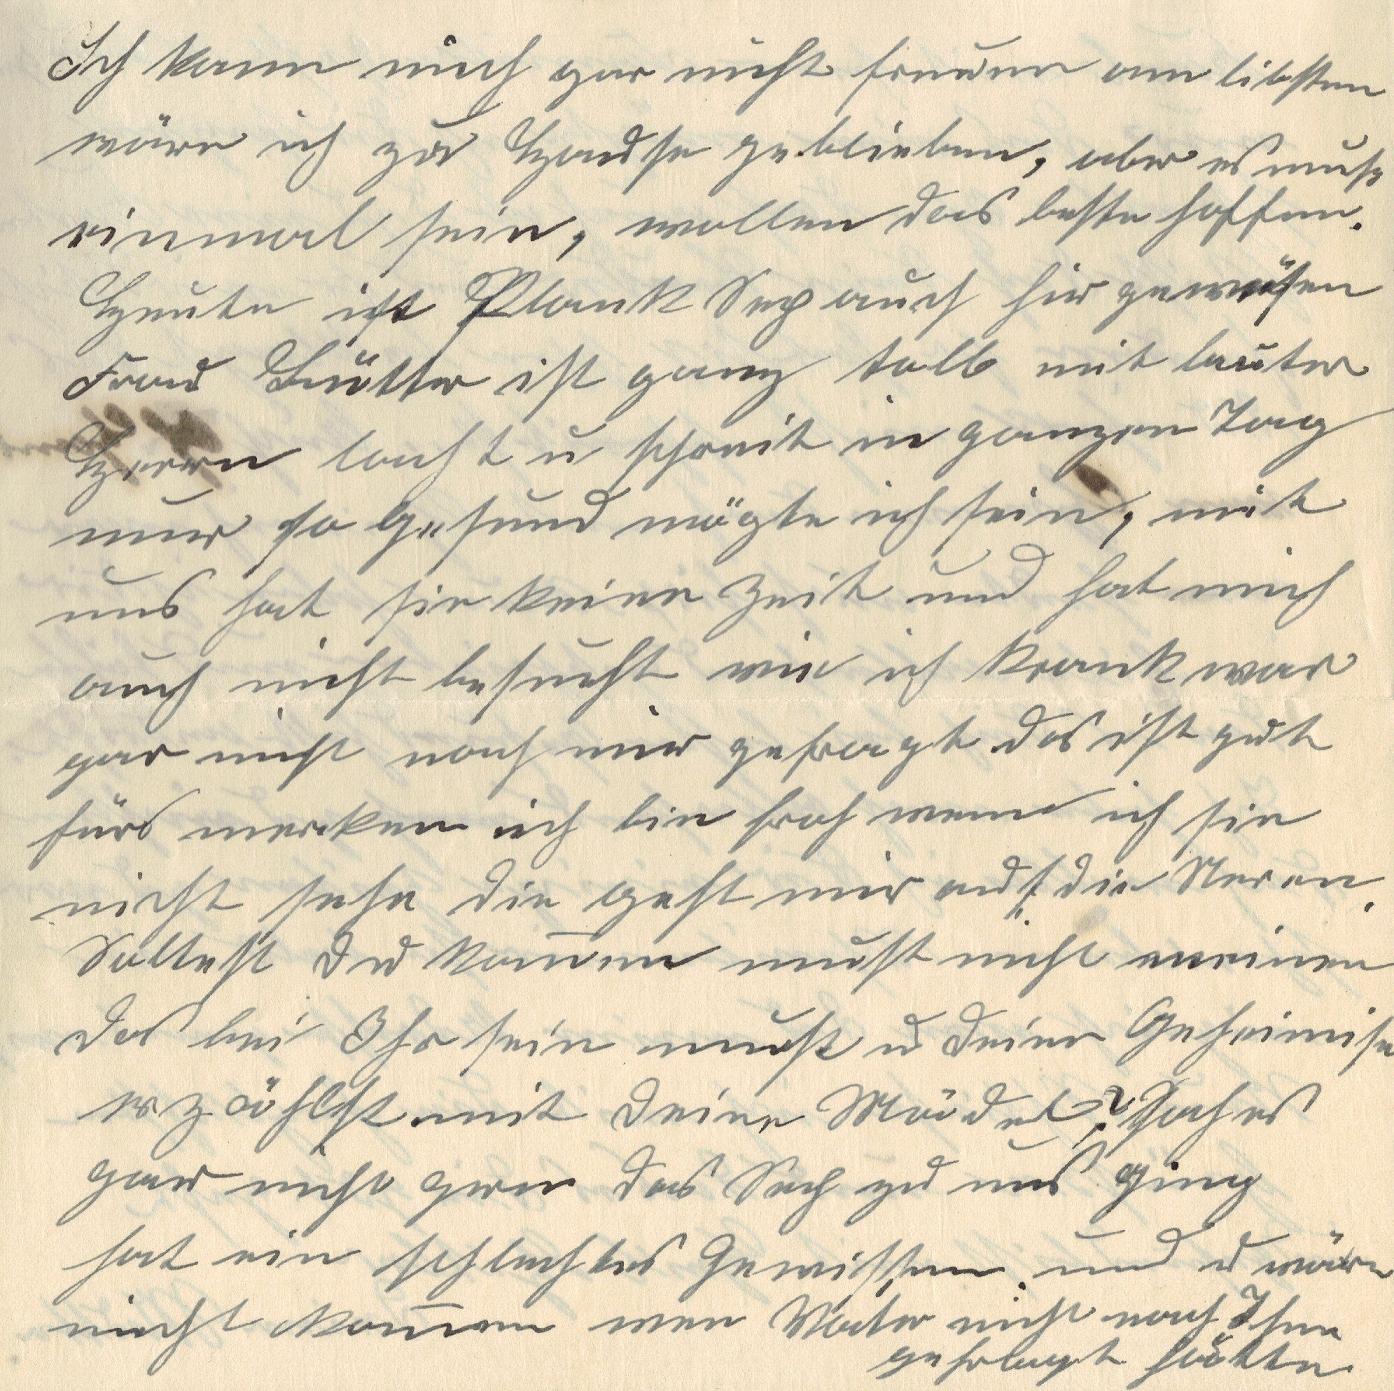 Ich kann mich gar nicht freuen am libsten
wäre ich zu Hause geblieben, aber es muß
einmal sein, wollen das beste hoffen.
Heute ist Plank Sep auch hir gewesen
Frau Hütter ist ganz tolb mit lauter
Herrn lacht u schreit in ganzen Tag
nur so gesund mögte ich sein, mit
uns hat sie keine Zeit und hat mich
auch nicht besucht wie ich krank war
gar nicht nach mir gefragt das ist gut
fürs merken ich bin froh wenn ich sie
nicht sehe die geht mir auf die Nerven.
Soltest du kom̅en must nicht meinen
das bei Ihr sein must u deine Geheimise
erzählst mit deine Mädel? Sah es
gar nicht gern das Sep zu uns ging
hat ein schlechtes Gewissen und u wäre
nicht kom̅en wen Vater nicht nach Ihm
gefragt hätte.